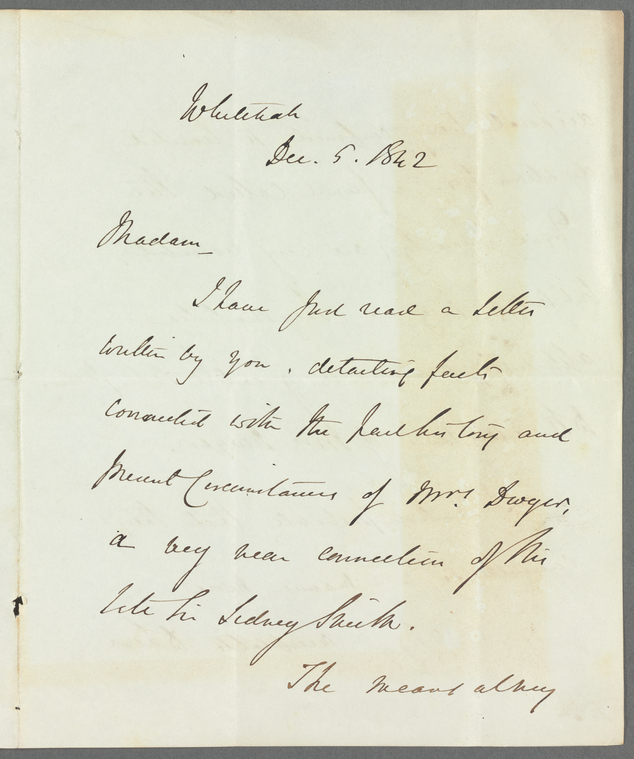 Whitehall
Dec. 5. 1842
Madam_
I have just read a letter
written by you, detailing facts
connected with the past history and
present Circumstances of Mrs. Dwyer,
a very near connection of the
late Sir Sidney Smith.
The means at my